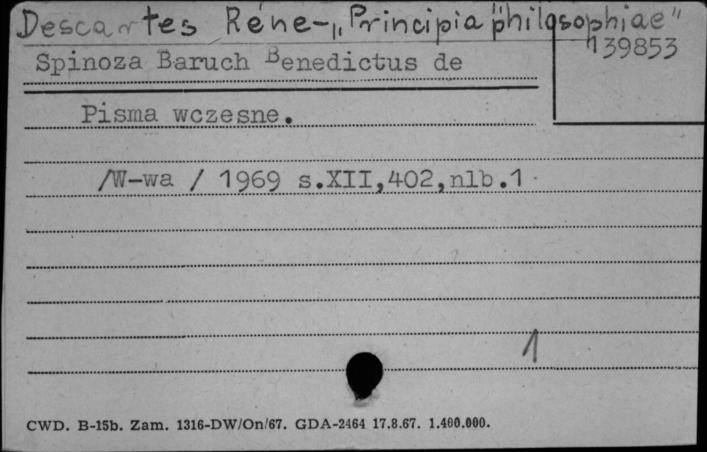 Descartes Réne-„Principia philosophiae"
139853
Spinoza Baruch Benedictus de
Pisma wczesne.
/W-wa / 1969 s.XII,402,nlb.1
1
CWD. B-15b. Zam. 1316-DW/On/67. GDA-2464 17.8.67. 1.400.000.